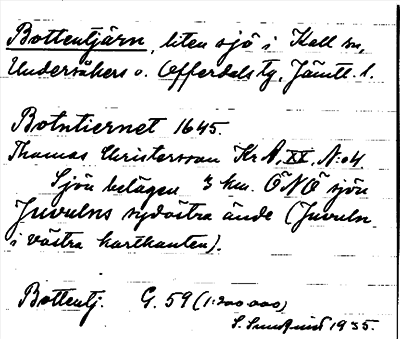 Bottentjärn, liten sjö i Kall sn,
Undersåkers o. Offerdals tg, Jämtl. l.
Botntiernet 1645.
Thomas Christersson Kr A, XX, N:o 4
Sjön belägen 3 km. ÖNÖ sjön
Juvulns sydöstra ände (Juvuln
i västra kartkanten).
Bottentj. G. 59 (1:200 000)
S. Sundlund 1935.